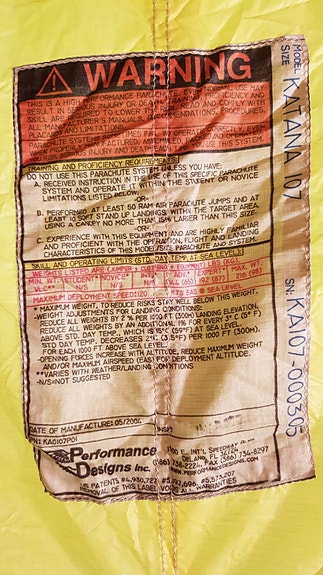 WARNING
THIS IS A HIGH PERFORMANCE PARACHUTE. EVEN NORMAL USE MAY
RESULT IN SERIOUS INJURY OR DEATH.
ALL MANUALS
PLACARDS AND LIMITATIONS
PARACHUTES SOMETIMES FAIL TO OPERATE CORRECTLY, EVEN
WHEN PROPERLY
TRAINING AND PROFICIENCY REQUIREMENTS
DO NOT USE THIS PARACHUTE SYSTEM UNLESS YOU HAVE:
A. RECEIVED INSTRUCTION IN THE USE OF THIS SPECIFIC PARACHUTE
SYSTEM AND OPERATE IT WITHIN THE STUDENT OR NOVICE
LIMITATIONS LISTED BELOW.
-OR-
B. PERFORMED AT LEAST 50 RAM-AIR PARACHUTE JUMPS AND AT
LEAST 10 SOFT STAND UP LANDINGS WITHIN THE TARGET AREA,
USING A CANOPY NO MORE THAN 15% LARGER THAN THIS SIZE.
-OR-
C. EXPERIENCE WITH THIS EQUIPMENT AND ARE HIGHLY FAMILIAR
AND PROFICIENT WITH THE OPERATION, FLIGHT AND LANDING
CHARACTERISTICS OF THIS MODEL/SIZE PARACHUTE AND SYSTEM.
SKILL AND OPERATING LIMITS (STD. DAY, TEMP. AT SEA LEVEL)
WEIGHTS LISTED ARE (JUMPER + CLOTHING + EQUIPMENT) LBS (KG)
MIN. WT. *STUDENT *NOVICE *INT. *ADV. *EXPERT *MAX. WT.
WLC** N/S N/S N/S (65) 192 (87) 216 (98)
MAXIMUM DEPLOYMENT SPEED: KTS EAS @ SEA LEVEL
* MAXIMUM WEIGHT, TO REDUCE RISKS STAY WELL BELOW THIS WEIGHT.
-WEIGHT ADJUSTMENTS FOR LANDING CONDITIONS:
REDUCE ALL WEIGHTS BY 2 % PER 1000 FT (300M) LANDING ELEVATION.
REDUCE ALL WEIGHTS BY AN ADDITIONAL 1% FOR EVERY 3° C (5° F)
ABOVE STD. DAY TEMP., WHICH IS 15°C (59°F) AT SEA LEVEL.
STD DAY TEMP. DECREASES 2°C (3.5°F) PER 1000 FT (300M).
FOR EACH 1000 FT ABOVE SEA LEVEL.
-OPENING FORCES INCREASE WITH ALTITUDE, REDUCE MAXIMUM WEIGHT
AND/OR MAXIMUM AIRSPEED (EAS) FOR DEPLOYMENT ALTITUDE.
**VARIES WITH WEATHER/LANDING CONDITIONS
-N/S=NOT SUGGESTED
DATE OF MANUFACTURE: 05/2004 INSP:
P/N: KA0107P01
Performance
Designs Inc.
1300 E. INT'L SPEEDWAY
DELAND, FL 32724
(386) 738-2224, FAX (386) 734-8297
WWW.PERFORMANCEDESIGNS.COM
US PATENTS #4,930,727 #5,197,696 #5,573,207
REMOVAL OF THIS LABEL VOIDS ALL WARRANTIES
MODEL KATANA 107
SIZE
S/N: KA107-000305